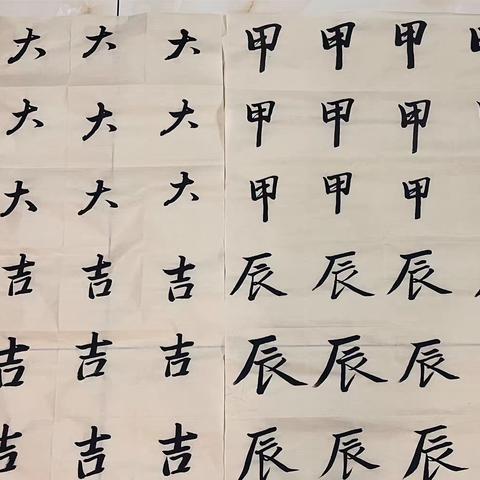 大 大 大 甲 甲 甲
大 大 大 甲 甲 甲
大 大 大 甲 甲 甲
吉 吉 吉 辰 辰 辰
吉 吉 吉 辰 辰 辰
吉 吉 吉 辰 辰 辰